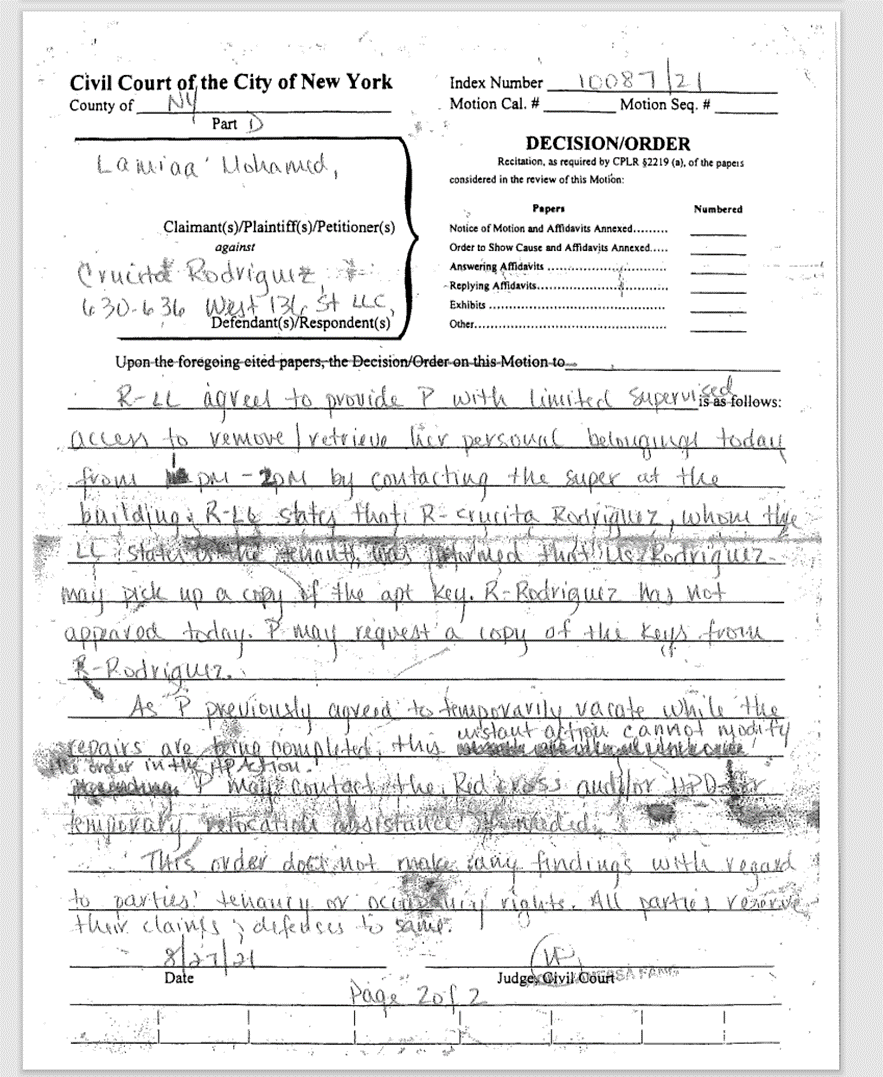 Civil Court of the City of New York
County of NY
Part D
Index Number 10087/21
Motion Cal. # Motion Seq. #
Lamiaa Mohamed,
Claimant(s)/Plaintiff(s)/Petitioner(s)
against
Crucita Rodriguez,
630-636 West 136 St LLC,
Defendant(s)/Respondent(s)
DECISION/ORDER
Recitation, as required by CPLR §2219 (a), of the papers
considered in the review of this Motion:
Papers Numbered
Notice of Motion and Affidavits Annexed.........
Order to Show Cause and Affidavits Annexed.....
Answering Affidavits ..........................
Replying Affidavits...........................
Exhibits .......................................
Other...........................................
Upon the foregoing cited papers, the Decision/Order on this Motion to
R-LL agreed to provide P with limited supervised is as follows:
access to remove/retrieve her personal belongings today
from pm - 2pm by contacting the super at the
building; R-LL states that R-Crucita Rodriguez, whom the
LL states is the tenant, was informed that Ms. Rodriguez
may pick up a copy of the apt key. R-Rodriguez has not
appeared today. P may request a copy of the keys from
R-Rodriguez.
As P previously agreed to temporarily vacate while the
repairs are being completed, this instant action cannot modify
the order in the HP Action.
P may contact the Red Cross and/or HPD for
temporary relocation assistance if needed.
This order does not make any findings with regard
to parties' tenancy or occupancy rights. All parties reserve
their claims & defenses to same.
8/27/21
Date
Judge, Civil Court
Page 2 of 2